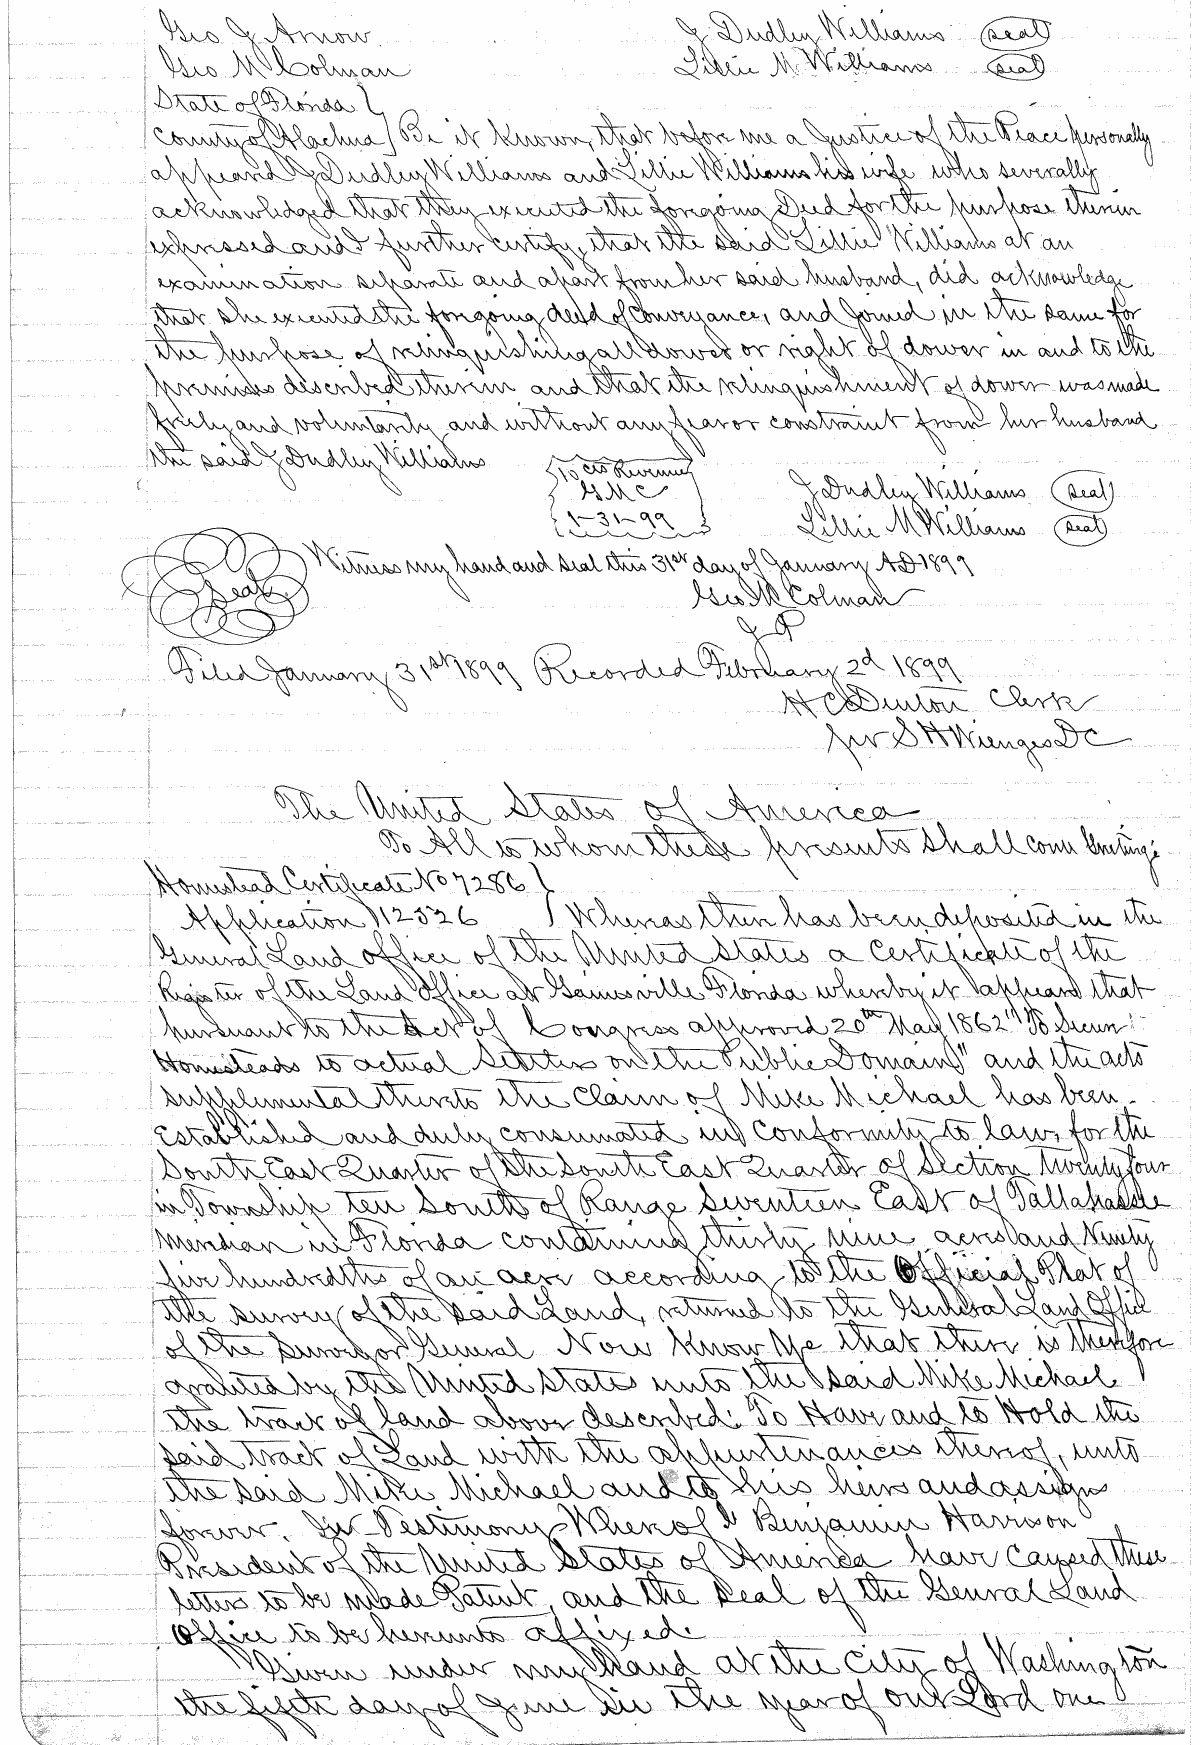 Geo J Arnow J Dudley Williams seal
Geo M Colman Lillie M Williams seal
State of Florida
County of Alachua Be it known, that before me a Justice of the Peace personally
appeard J Dudley Williams and Lillie Williams his wife who severally
acknowledged that they executed the foregoing Deed for the purpose therein
expressed and I further certify, that the said Lillie Williams at an
examination separate and apart from her said husband, did acknowledge
that she executed the foregoing deed of Conveyance, and Joined in the same for
the purpose of relinquishing all dower or right of dower in and to the
premises described therein and that the relinquishment of dower was made
freely and voluntarily and without any fear or constraint from her husband
the said J Dudley Williams
10 cts Revenue
GMC
1-31-99
J Dudley Williams seal
Lillie M Williams seal
Witness my hand and seal this 31st day of January AD 1899
Seal
Geo M Colman
J P
Filed January 31st 1899 Recorded February 2d 1899
H C Denton Clerk
per S H Wienges DC
The United States of America
To All to whom these presents shall come Greeting:
Homestead Certificate No 7286
Application 12526 Whereas there has been deposited in the
General Land office of the United States a Certificate of the
Register of the Land Office at Gainesville Florida whereby it appears that
pursuant to the Act of Congress approved 20th May 1862 "To Secure
Homesteads to actual Settlers on the Public Domain" and the acts
supplemental thereto the Claim of Mike Michael has been
Established and duly consumated in Conformity to law, for the
South East Quarter of the South East Quarter of Section twenty four
in Township ten South of Range Seventeen East of Tallahassee
Meridian in Florida containing thirty nine acres and Ninety
five hundredths of an acre according to the Official Plat of
the survey of the said Land, returned to the General Land Office
of the Surveyor General Now Know Ye that there is therefore
granted by the United States unto the said Mike Michael
the tract of land above described: To Have and to Hold the
said tract of Land with the appurtenances thereof, unto
the said Mike Michael and to his heirs and assigns
forever. In Testimony Whereof I Benjamin Harrison
President of the United States of America have caused these
letters to be made Patent, and the seal of the General Land
Office to be hereunto affixed.
Given under my hand at the City of Washington
the fifth day of June in the year of our Lord one